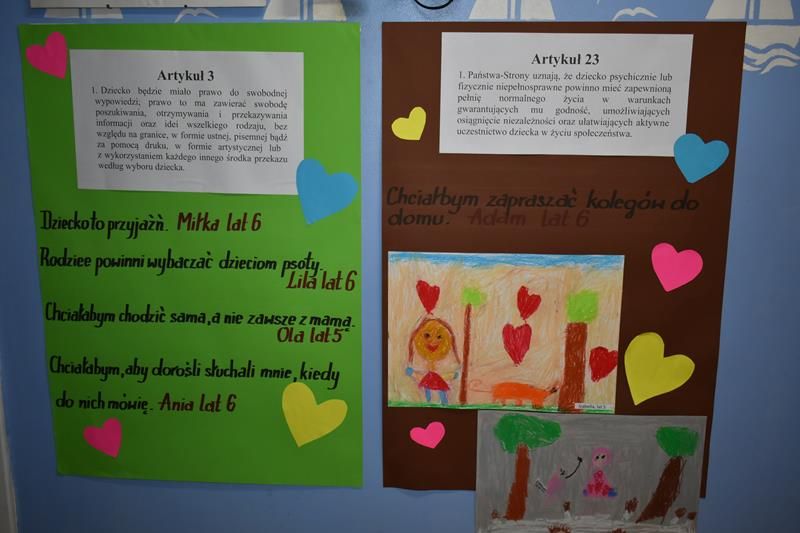 Artykuł 3
1. Dziecko będzie miało prawo do swobodnej
wypowiedzi; prawo to ma zawierać swobodę
poszukiwania, otrzymywania i przekazywania
informacji oraz idei wszelkiego rodzaju, bez
względu na granice, w formie ustnej, pisemnej bądź
za pomocą druku, w formie artystycznej lub
z wykorzystaniem każdego innego środka przekazu
według wyboru dziecka.
Dziecko to przyjaźń. Miłka lat 6
Rodziee powinni wybaczać dzieciom psoty.
Lila lat 6
Chciałabym chodzić sama, a nie zawsze z mamą.
Ola lat 5
Chciałabym, aby dorośli słuchali mnie, kiedy
do nich mówię. Ania lat 6
Artykuł 23
1. Państwa-Strony uznają, że dziecko psychicznie lub
fizycznie niepełnosprawne powinno mieć zapewnioną
pełnię normalnego życia w warunkach
gwarantujących mu godność, umożliwiających
osiągnięcie niezależności oraz ułatwiających aktywne
uczestnictwo dziecka w życiu społeczeństwa.
Chciałbym zapraszać kolegów do
domu. Adam lat 6
Izabella, lat 5